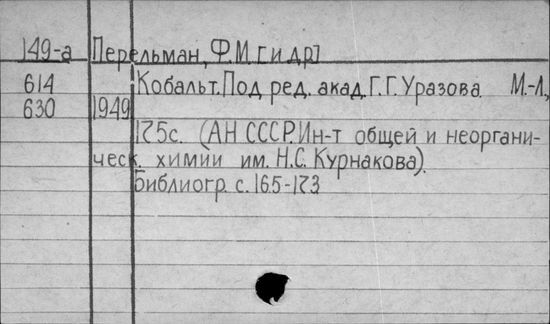 149-а Перельман, Ф.М. [и др]
614 Кобальт. Под ред. акад. Г.Г. Уразова. М.-Л.,
630 1949
175с. (АН СССР. Ин-т общей и неоргани-
ческ. химии им. Н.С. Курнакова).
Библиогр. с. 165-173